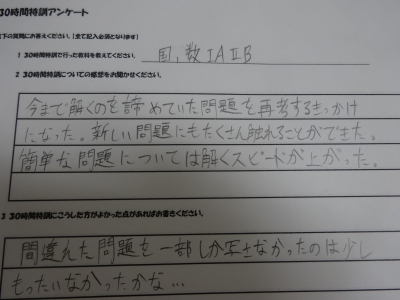 30時間特訓アンケート
下の質問にお答えください。【全て記入必須となります】
1 30時間特訓で行った教科を教えてください。 国, 数ⅠAⅡB
2 30時間特訓についての感想をお聞かせください。
今まで解くのを諦めていた問題を再考するきっかけ
になった。新しい問題にもたくさん触れることができた。
簡単な問題については解くスピードが上がった。
3 30時間特訓にこうした方がよかった点があればお書きください。
間違えた問題を一部しか写せなかったのは少し
もったいなかったかな…